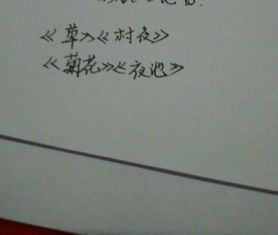 《草》《村夜》
《菊花》《夜池》